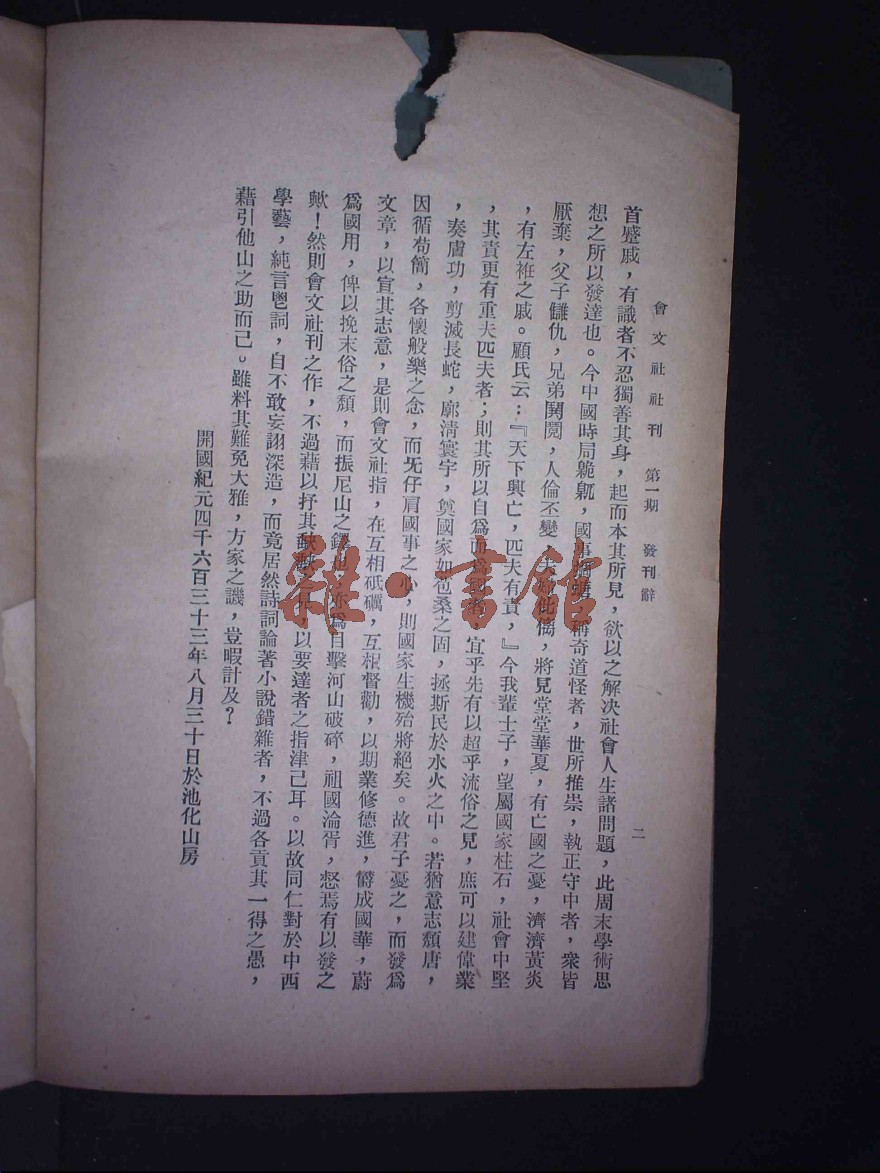 會文社社刊 第一期 發刊辭 二
首蹙戚，有識者不忍獨善其身，起而本其所見，欲以之解決社會人生諸問題，此周末學術思
想之所以發達也。今中國時局臲卼，國事蜩螗，稱奇道怪者，世所推崇，執正守中者，衆皆
厭棄，父子讎仇，兄弟鬩閱，人倫丕變，夫婦仳離，將見堂堂華夏，有亡國之憂，濟濟黃炎
，有左袵之戚。顧氏云：『天下興亡，匹夫有責，』今我輩士子，望屬國家柱石，社會中堅
，其責更有重夫匹夫者；則其所以自爲而爲國者，宜乎先有以超乎流俗之見，庶可以建偉業
，奏膚功，剪滅長蛇，廓清寰宇，奠國家如苞桑之固，拯斯民於水火之中。若猶意志頹唐，
因循苟簡，各懷般樂之念，而旡仔肩國事之心，則國家生機殆將絕矣。故君子憂之，而發爲
文章，以宣其志意，是則會文社指，在互相砥礪，互相督勸，以期業修德進，欝成國華，蔚
爲國用，俾以挽末俗之頹，而振尼山之鐸也，亦爲目擊河山破碎，祖國淪胥，惄焉有以發之
歟！然則會文社刊之作，不過藉以抒其缺缺之見，以要達者之指津己耳。以故同仁對於中西
學藝，純言鬯詞，自不敢妄詡深造，而竟居然詩詞論著小說錯雜者，不過各貢其一得之愚，
藉引他山之助而己。雖料其難免大雅，方家之譏，豈暇計及？
開國紀元四千六百三十三年八月三十日於池化山房
雜·書館